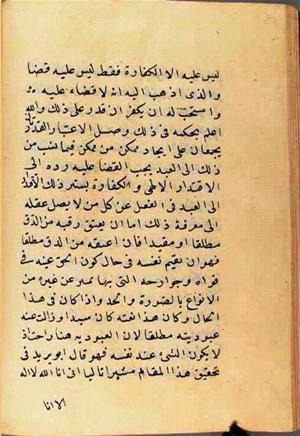 ليس عليه الا الكفارة فقط ليس عليه قضا
والذى اذهب اليه انه لا قضاء عليه
واستحب له ان يكفر ان قدر على ذلك والله
اعلم بحكمه فى ذلك وصل الاعتبار القدرتان
يجمعان على ايجاد ممكن من ممكن فيما نسب من
ذلك الى العبد يجب القضا عليه رده الى
الاقتدار الالهى والكفارة يستر ذلك
الى العبد فى الفعل عن كل من لا يصل عقله
الى معرفة ذلك اما ان يعتق رقبه من الرق
مطلقا او مقيدا فان اعتقه من الرق مطلقا
فهو ان يقيم نفسه فى حال كون الحق عينه فى
قواه وجوارحه التى بها تميز عن غيره من
الانواع بالصورة والحد واذا كان فى هذا
الحال وكان هذا نعته كان سيدا وزالت عنه
عبوديته مطلقا لان العبوديه هنا راحت اذ
لا يكون الشئ عبد نفسه فهو قال ابو يزيد فى
تحقيق هذا المقام مشيرا تاليا انى انا الله لا اله
الا انا